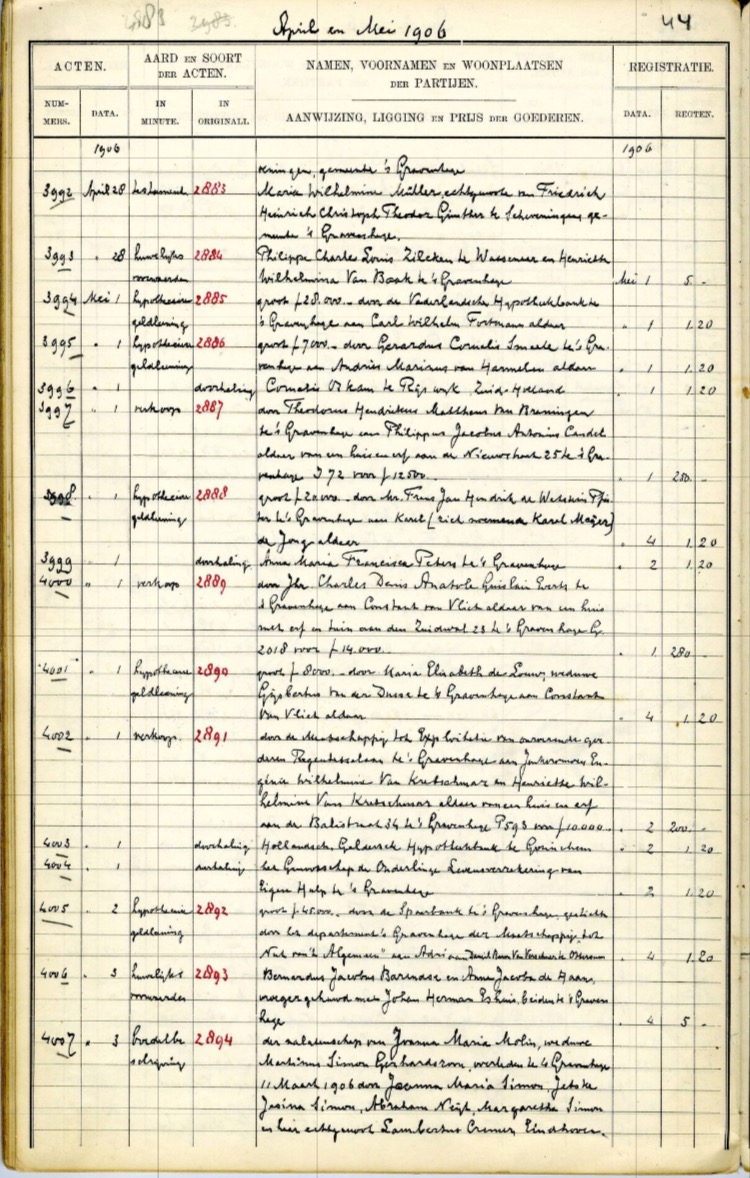 April en Mei 1906
44
ACTEN.
AARD EN SOORT DER ACTEN.
NAMEN, VOORNAMEN EN WOONPLAATSEN DER PARTIJEN.
REGISTRATIE.
NUM-MERS.
DATA.
IN MINUTE.
IN ORIGINALI.
AANWIJZING, LIGGING EN PRIJS DER GOEDEREN.
DATA.
REGTEN.
1906 1906
veningen, gemeente 's Gravenhage
3992 April 28 testament 2883 Maria Wilhelmine Müller, echtgenoote van Friedrich
Heinrich Christoph Theodor Günther te Scheveningen, ge-
meente 's Gravenhage.
3993 " 28 huwelijks 2884 Philippe Charles Louis Zilcken te Wassenaar en Henriette
voorwaarden Wilhelmina Van Baak te 's Gravenhage Mei 1 5. -
3994 Mei 1 hypothecaire 2885 groot f 28.000.- door de Vaderlandsche Hypotheekbank te
geldleening 's Gravenhage aan Carl Wilhelm Fortmann aldaar " 1 1.20
3995 " 1 hypothecaire 2886 groot f 7000.- door Gerardus Cornelis Smeele te 's Gra-
geldleening venhage aan Andries Marinus van Harmelen aldaar " 1 1.20
3996 " 1 doorhaling Cornelis te Rijswijk, Zuid-Holland " 1 1.20
3997 " 1 verkoop 2887 door Theodorus Hendrikus Mattheus Van Benningen
te 's Gravenhage aan Philippus Jacobus Antonius Candel
aldaar van een huis en erf aan de Nieuwstraat 25 te 's Gra-
venhage I 72 voor f 12500.- " 1 250. -
3998 " 1 hypothecaire 2888 groot f 20.000.- door Mr. Frans Jan Hendrik de Wetstein
geldleening te 's Gravenhage aan Karel (zich noemende Karel Meijer)
de Jong aldaar " 4 1.20
3999 " 1 doorhaling Anna Maria Francisca Peters te 's Gravenhage " 2 1.20
4000 " 1 verkoop 2889 door Jhr. Charles Denis Anatole Guislain Everts te
's Gravenhage aan Constant van Vliet aldaar van een huis
met erf en tuin aan den Zuidwal 23 te 's Gravenhage G.
2018 voor f 14.000. " 1 280 -
4001 " 1 hypothecaire 2890 groot f 8000.- door Maria Elisabeth de Louw, weduwe
geldleening Gijsbertus van der Dusse te 's Gravenhage aan Constant
Van Vliet aldaar " 4 1.20
4002 " 1 verkoop 2891 door de Maatschappij tot Exploitatie van onroerende goe-
deren Regentesselaan te 's Gravenhage aan Jonkvrouwen Eu-
génie Wilhelmine Van Kretschmar en Henriette Wil-
helmine Van Kretschmar aldaar van een huis en erf
aan de Balistraat 34 te 's Gravenhage P 593 voor f 10.000.- " 2 200. -
4003 " 1 doorhaling Hollandsch Geldersche Hypotheekbank te Gorinchem " 2 1.20
4004 " 1 doorhaling het Genootschap de Onderlinge Levensverzekering van
Eigen Hulp te 's Gravenhage 2 1.20
4005 " 2 hypothecaire 2892 groot f 45.000.- door de Spaarbank te 's Gravenhage, gesticht
geldleening door het departement 's Gravenhage der Maatschappij "tot
Nut van 't Algemeen" aan Adriaan " 4 1.20
4006 " 3 huwelijks 2893 Bernardus Jacobus Barendse en Anna Jacoba de Haan,
voorwaarden vroeger gehuwd met Johan Herman Eshuis, beiden te 's Graven
hage " 4 5 -
4007 " 3 boedelbe 2894 der nalatenschap van Joanna Maria Molin, weduwe
schrijving Martinus Simon Gerhardszoon, overleden te 's Gravenhage
11 Maart 1906 door Joanna Maria Simon, Jetske
Jasina Simon, Abraham Neijt, Margaretha Simon
en hier echtgenoot Lambertus Cremer, Eindhoven.